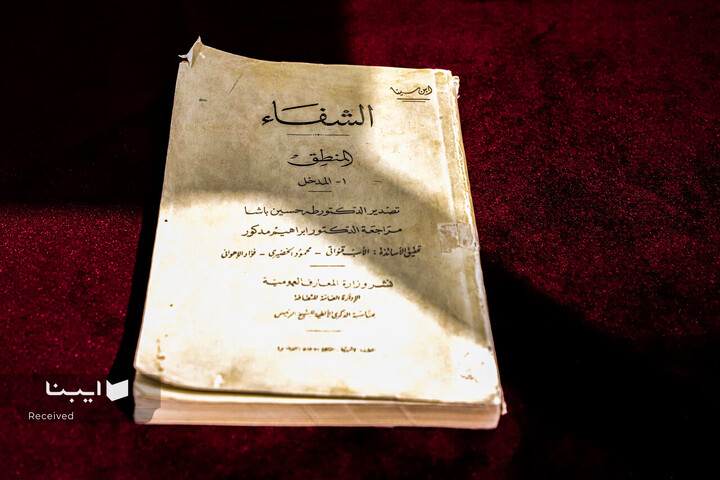 ابن سينا
الشفاء
المنطق
١- المدخل
تصدير الدكتور طه حسين باشا
مراجعة الدكتور ابراهيم مدكور
تحقيق الأساتذة : الأب قنواتى - محمود الخضيرى - فؤاد الإهوانى
نشر وزارة المعارف العمومية
الإدارة العامة للثقافة
بمناسبة الذكرى الألفية للشيخ الرئيس
ایبنا
Received